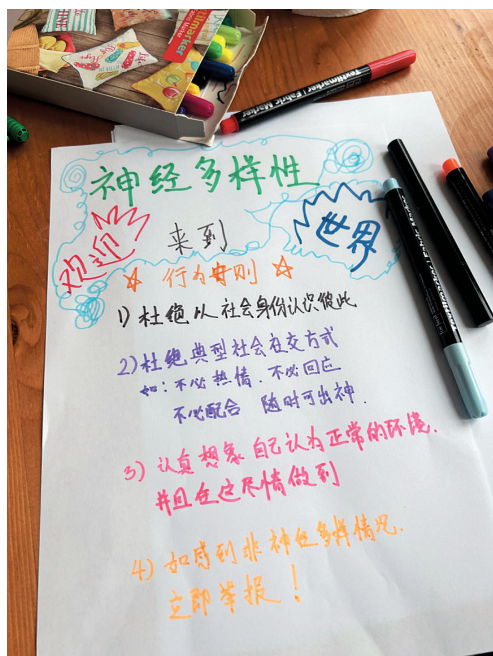 Textilmarker
Textilmarker | Fabric Marker
神经多样性
欢迎
来到
世界
☆ 行为守则 ☆
1) 杜绝从社会身份认识彼此
2) 杜绝典型社会社交方式
如：不必热情．不必回应
不必配合 随时可出神．
3) 认真想象自己认为正常的环境．
并且在这尽情做到
4) 如感到非神经多样情况．
立即举报！